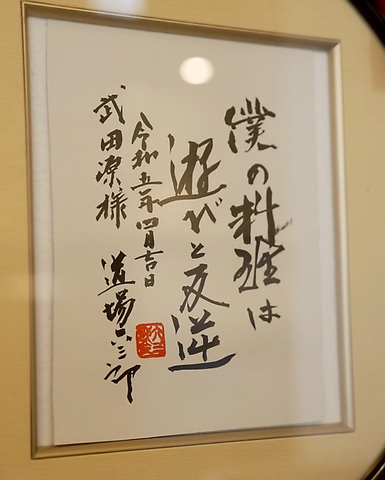 僕の料理は
遊びと反逆
令和五年四月吉日
武田凛様
道場六三郎